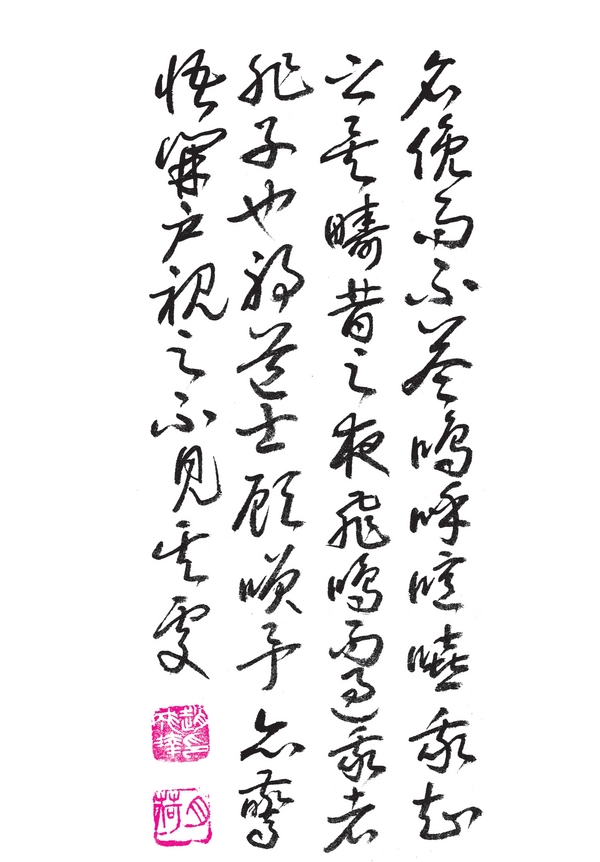 名俛而不答嗚呼噫嘻我知
之矣疇昔之夜飛鳴而過我者
非子也耶道士顧咲予亦驚
悟開户視之不見其處